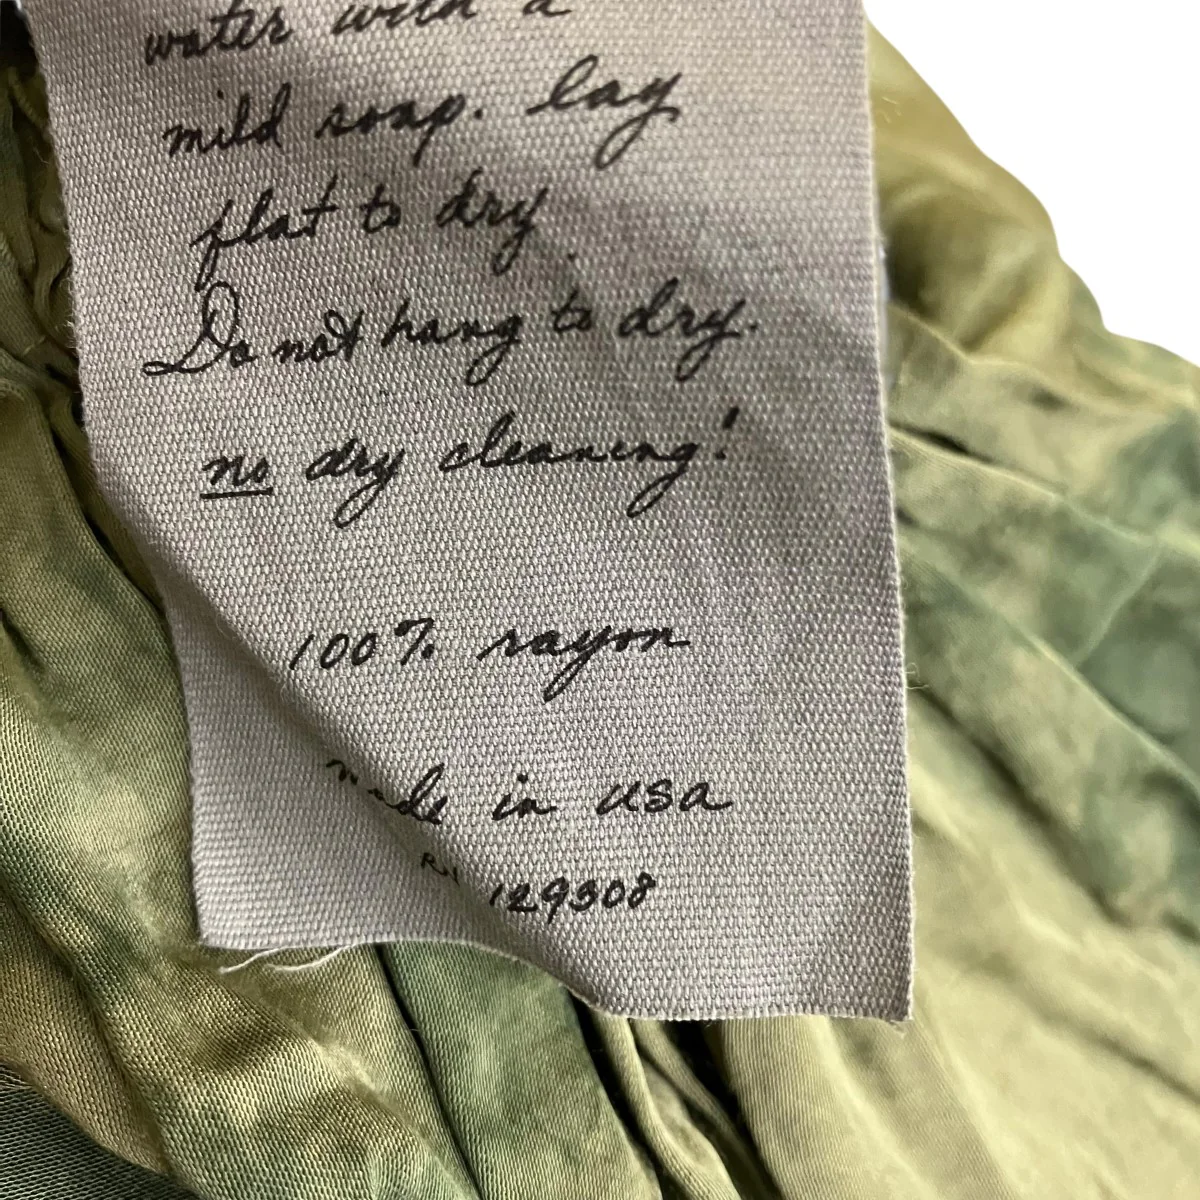 water with a
mild soap. lay
flat to dry.
Do not hang to dry.
no dry cleaning!
100% rayon
made in USA
RN 129308